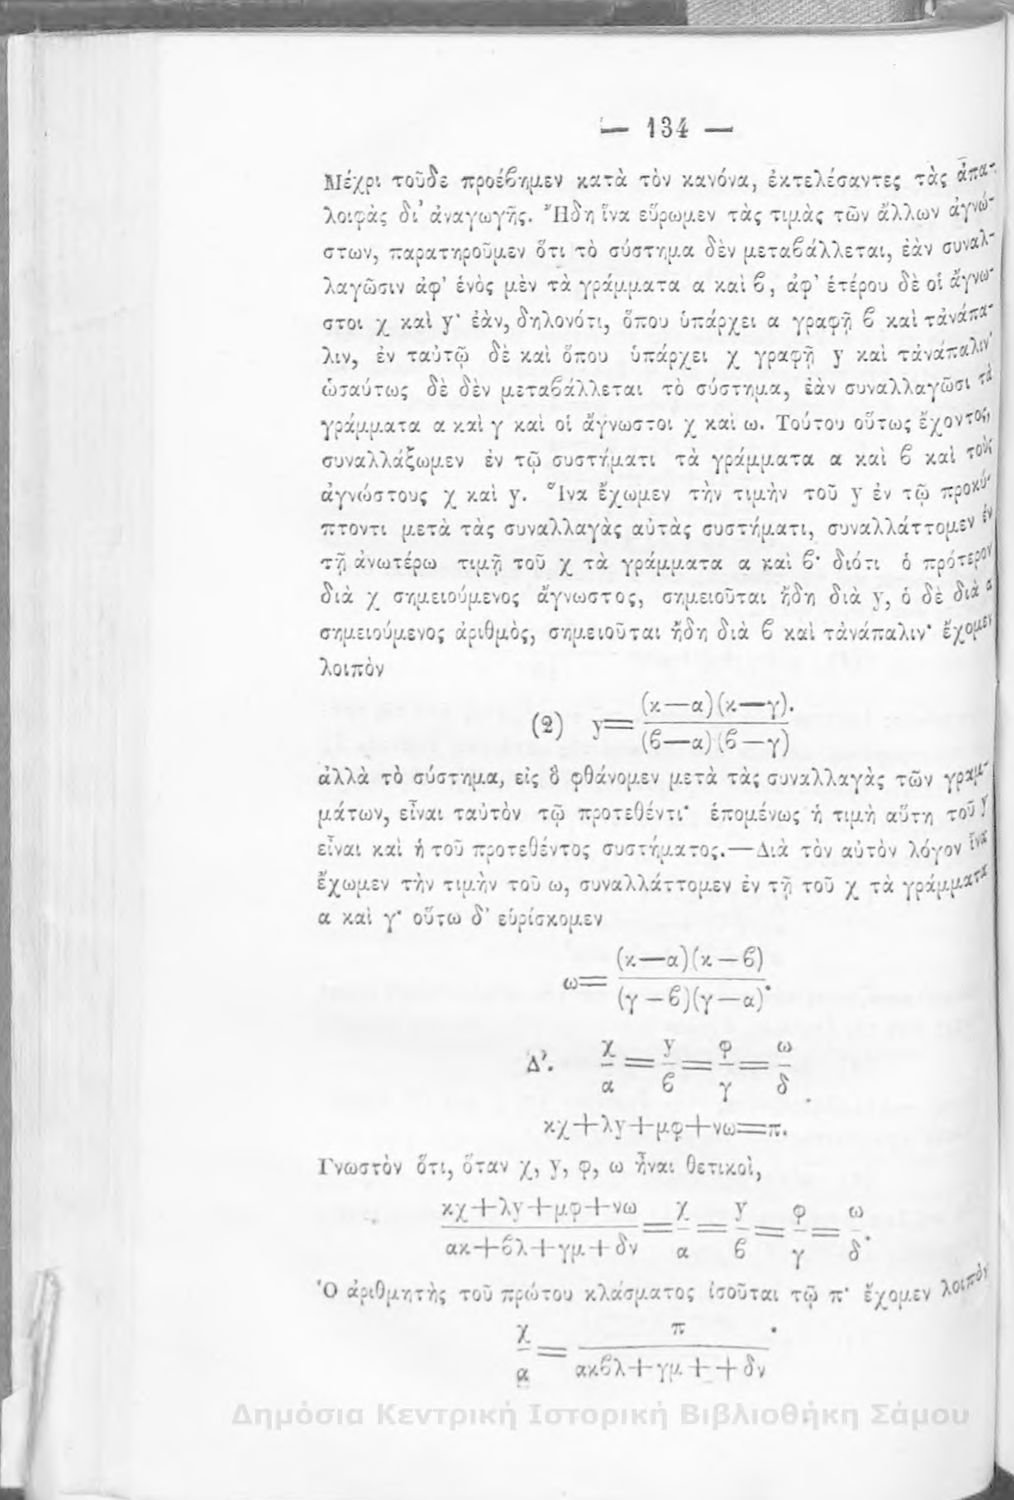 — 134 —
Μέχρι τοῦδε προέϐημεν κατὰ τὸν κανόνα, ἐκτελέσαντες τὰς ἀπα-
λοιφὰς δι' ἀναγωγῆς. Ἤδη ἵνα εὕρωμεν τὰς τιμὰς τῶν ἄλλων ἀγνώ-
στων, παρατηροῦμεν ὅτι τὸ σύστημα δὲν μεταϐάλλεται, ἐὰν συναλ-
λαγῶσιν ἀφ' ἑνὸς μὲν τὰ γράμματα α καὶ ϐ, ἀφ' ἑτέρου δὲ οἱ ἄγνω-
στοι χ καὶ y· ἐὰν, δηλονότι, ὅπου ὑπάρχει α γραφῇ ϐ καὶ τἀνάπα-
λιν, ἐν ταὐτῷ δὲ καὶ ὅπου ὑπάρχει χ γραφῇ y καὶ τἀνάπαλιν·
ὡσαύτως δὲ δὲν μεταϐάλλεται τὸ σύστημα, ἐὰν συναλλαγῶσι τὰ
γράμματα α καὶ γ καὶ οἱ ἄγνωστοι χ καὶ ω. Τούτου οὕτως ἔχοντος,
συναλλάξωμεν ἐν τῷ συστήματι τὰ γράμματα α καὶ ϐ καὶ τοὺς
ἀγνώστους χ καὶ y. Ἵνα ἔχωμεν τὴν τιμὴν τοῦ y ἐν τῷ προκύ-
πτοντι μετὰ τὰς συναλλαγὰς αὐτὰς συστήματι, συναλλάττομεν ἐν
τῇ ἀνωτέρω τιμῇ τοῦ χ τὰ γράμματα α καὶ ϐ· διότι ὁ πρότερον
διὰ χ σημειούμενος ἄγνωστος, σημειοῦται ἤδη διὰ y, ὁ δὲ διὰ α
σημειούμενος ἀριθμὸς, σημειοῦται ἤδη διὰ ϐ καὶ τἀνάπαλιν· ἔχομεν
λοιπὸν
(κ—α)(κ—γ).
(2) y=
(ϐ—α)(ϐ—γ)
ἀλλὰ τὸ σύστημα, εἰς ὃ φθάνομεν μετὰ τὰς συναλλαγὰς τῶν γραμ-
μάτων, εἶναι ταὐτὸν τῷ προτεθέντι· ἑπομένως ἡ τιμὴ αὕτη τοῦ y
εἶναι καὶ ἡ τοῦ προτεθέντος συστήματος.—Διὰ τὸν αὐτὸν λόγον ἵνα
ἔχωμεν τὴν τιμὴν τοῦ ω, συναλλάττομεν ἐν τῇ τοῦ χ τὰ γράμματα
α καὶ γ· οὕτω δ' εὑρίσκομεν
(κ—α)(κ—ϐ)
ω=
(γ—ϐ)(γ—α)·
Δ'. χ/α = y/ϐ = φ/γ = ω/δ .
κχ+λy+μφ+νω=π.
Γνωστὸν ὅτι, ὅταν χ, y, φ, ω ἦναι θετικοὶ,
κχ+λy+μφ+νω χ y φ ω
= = = =
ακ+ϐλ+γμ+δν α ϐ γ δ·
Ὁ ἀριθμητὴς τοῦ πρώτου κλάσματος ἰσοῦται τῷ π· ἔχομεν λοιπὸν
χ π ·
=
α ακϐλ+γμ++δν
Δημόσια Κεντρική Ιστορική Βιβλιοθήκη Σάμου